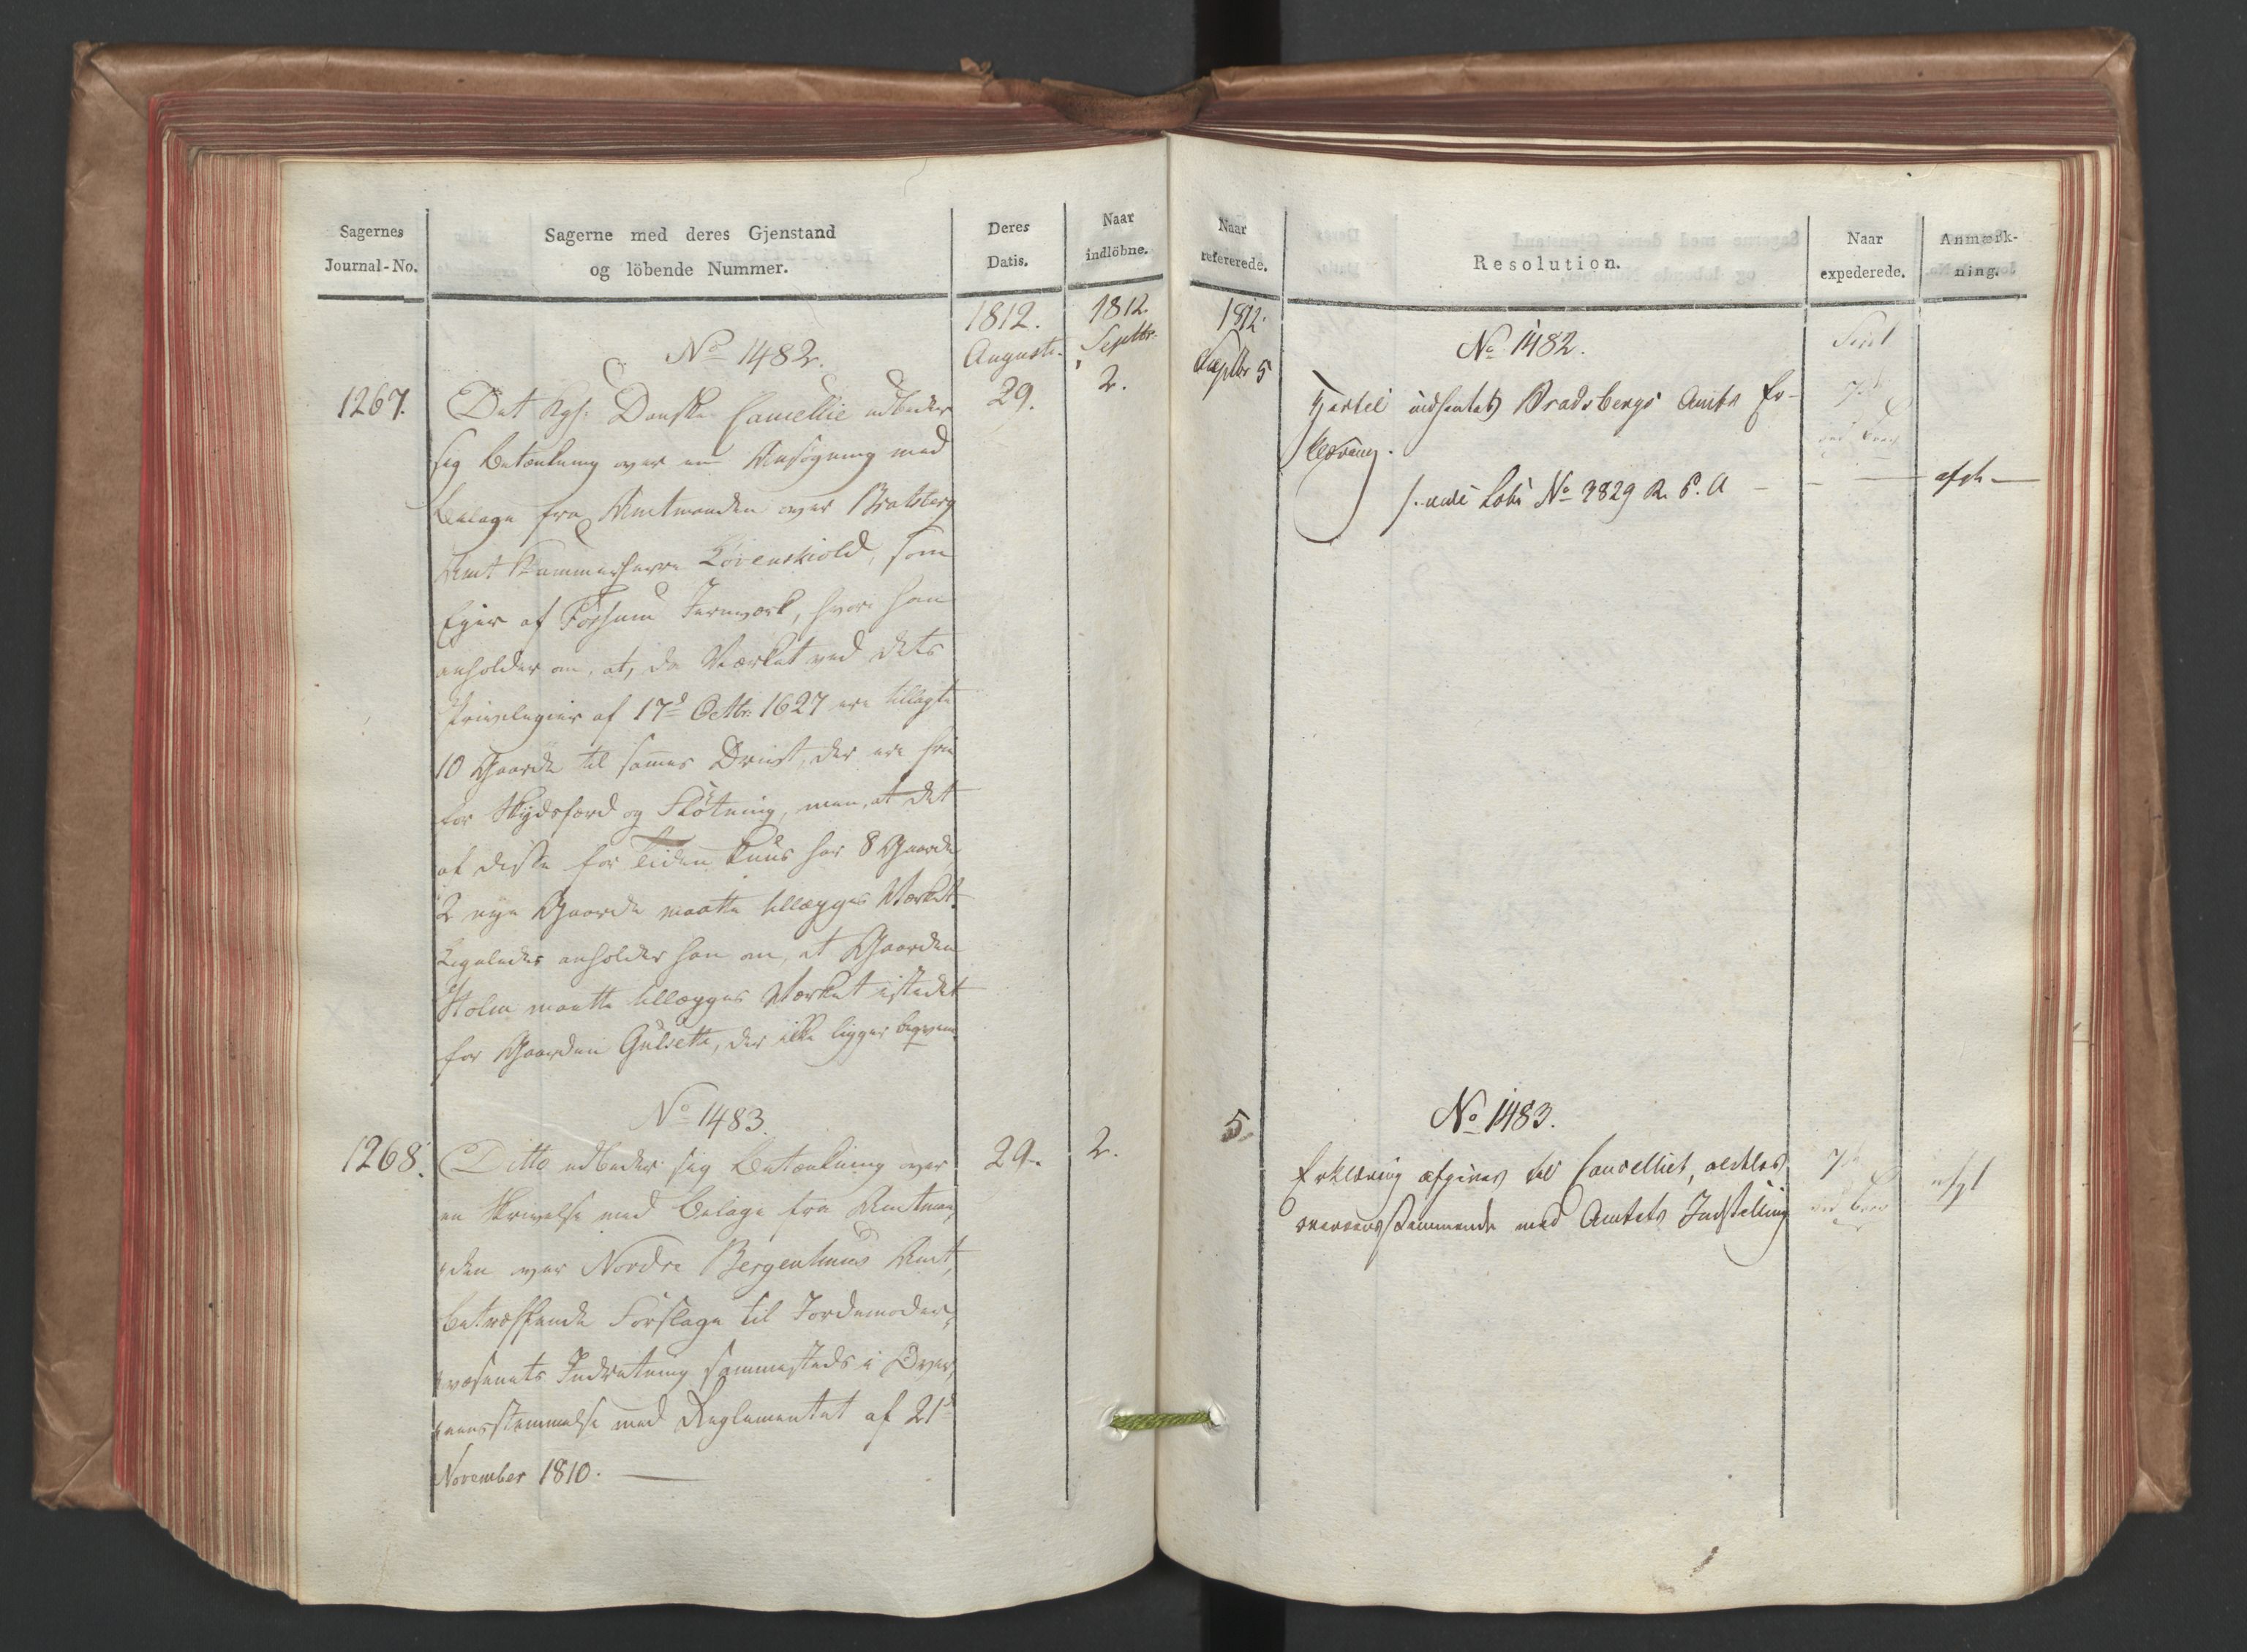 Sagernes
Journal-No.
Sagerne med deres Gjenstand
og löbende Nummer.
Deres
Datis.
Naar
indlöbne.
1812.
August.
1812.
Septbr.
No 1482.
1267.
Det Kgl: Danske Cancellie udbeder
29.
2.
sig Betænkning over en Ansøgning med
Bilage fra Amtmanden over Bratsberg
Amt Kammerherre Løvenskiold, som
Eier af Fossum Jernværk, hvori han
anholder om, at, da Værket ved dets
Privilegier af 17d Octbr: 1627 ere tillagte
10 Gaarde til sammes Drivt, der ere frie
for Skydsfærd og Fløtning, men, at det
af disse for Tiden kuns har 8 Gaarde
2 nye Gaarde maatte tillægges Værket.
Ligeledes anholder han om, at Gaarden
Holm maatte tillægges Værket istedet
for Gaarden Gulsette, der ikke ligger beqvem.
No 1483.
1268.
Ditto udbeder sig Betænkning over
29.
2.
en Skrivelse med Bilage fra Amtman-
den over Nordre Bergenhuus Amt,
betræffende Forslage til Jordemoder-
væsenets Indretning sammesteds i Over-
eensstemmelse med Reglementet af 21d
November 1810.
Naar
refererede.
Resolution.
Naar
expederede.
Anmærk-
ning.
1812.
Septbr 5
No 1482.
Hertil indhentes Bradsbergs Amts Er-
klæring.
7de
No 3829
5.
No 1483.
Erklæring afgives til Cancelliet, aldeles
overeensstemmende med Amtets Indstilling
7de